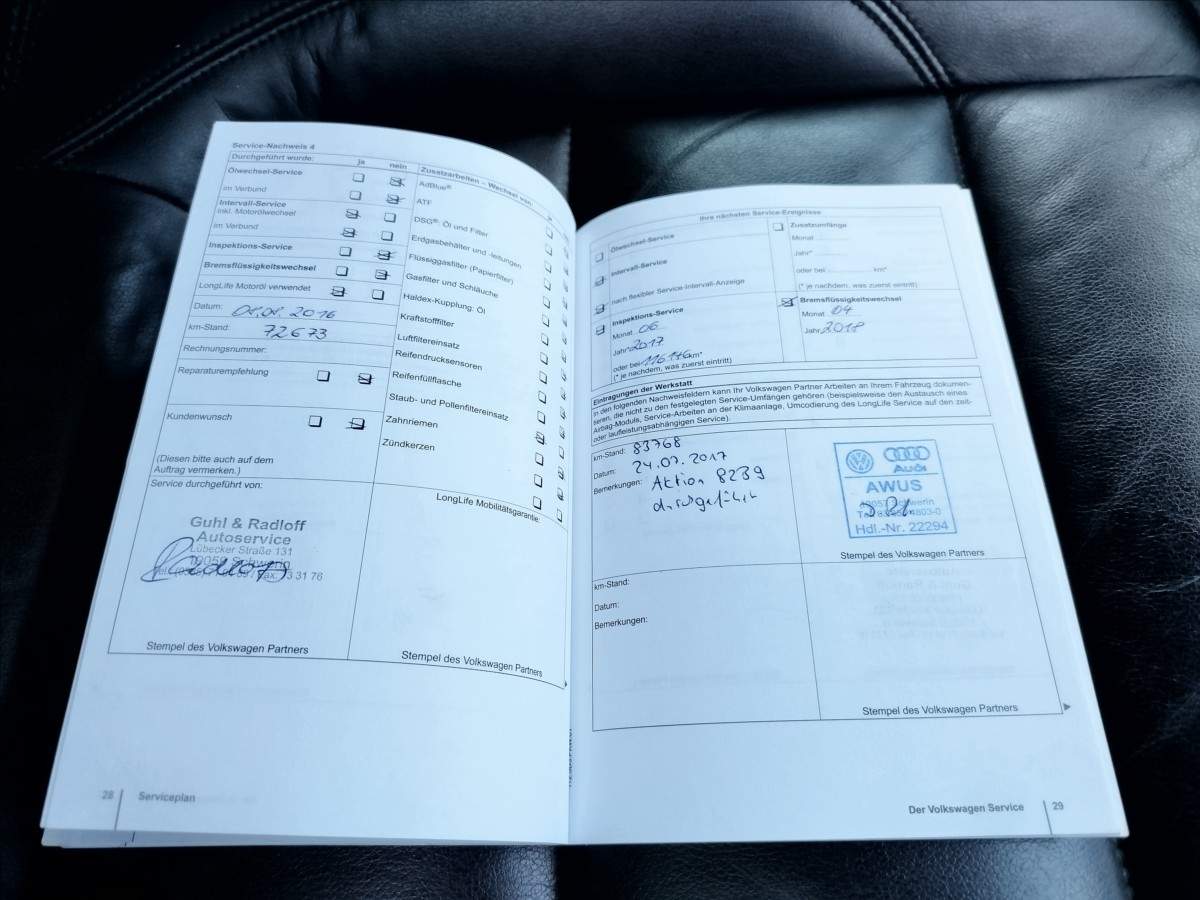 Service-Nachweis 4
Durchgeführt wurde: ja nein
Ölwechsel-Service
im Verbund
Intervall-Service
inkl. Motorölwechsel
im Verbund
Inspektions-Service
Bremsflüssigkeitswechsel
LongLife Motoröl verwendet
Datum: 2016
km-Stand: 72673
Rechnungsnummer:
Reparaturempfehlung
Kundenwunsch
(Diesen bitte auch auf dem
Auftrag vermerken.)
Service durchgeführt von:
Guhl & Radloff
Autoservice
Lübecker Straße 131
3 31 76
Stempel des Volkswagen Partners
Zusatzarbeiten – Wechsel von:
AdBlue®
ATF
DSG®: Öl und Filter
Erdgasbehälter und -leitungen
Flüssiggasfilter (Papierfilter)
Gasfilter und Schläuche
Haldex-Kupplung: Öl
Kraftstofffilter
Luftfiltereinsatz
Reifendrucksensoren
Reifenfüllflasche
Staub- und Pollenfiltereinsatz
Zahnriemen
Zündkerzen
LongLife Mobilitätsgarantie:
Stempel des Volkswagen Partners
28 Serviceplan
Ihre nächsten Service-Ereignisse
Ölwechsel-Service
Intervall-Service
nach flexibler Service-Intervall-Anzeige
Inspektions-Service
Monat 06
Jahr* 2017
oder bei 116176 km*
(* je nachdem, was zuerst eintritt)
Zusatzumfänge
Monat
Jahr*
oder bei km*
(* je nachdem, was zuerst eintritt)
Bremsflüssigkeitswechsel
Monat 04
Jahr 2018
Eintragungen der Werkstatt
In den folgenden Nachweisfeldern kann Ihr Volkswagen Partner Arbeiten an Ihrem Fahrzeug dokumen-
tieren, die nicht zu den festgelegten Service-Umfängen gehören (beispielsweise den Austausch eines
Airbag-Moduls, Service-Arbeiten an der Klimaanlage, Umcodierung des LongLife Service auf den zeit-
oder laufleistungsabhängigen Service).
km-Stand: 83768
Datum: 24.07.2017
Bemerkungen: Aktion 8239
durchgeführt
Audi
AWUS
Schwerin
Hdl.-Nr. 22294
Stempel des Volkswagen Partners
km-Stand:
Datum:
Bemerkungen:
Stempel des Volkswagen Partners
Der Volkswagen Service 29